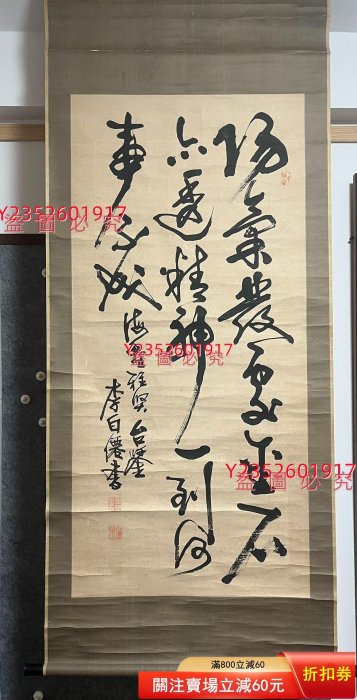 陽氣發處金石
亦透精神一到何
事不成
海雅兄台鑒
李白書
Y2352601917
盜圖必究
Y2352601917
盜圖必究
Y2352601917
盜圖必究
滿800立減60
關注賣場立減60元
折扣券